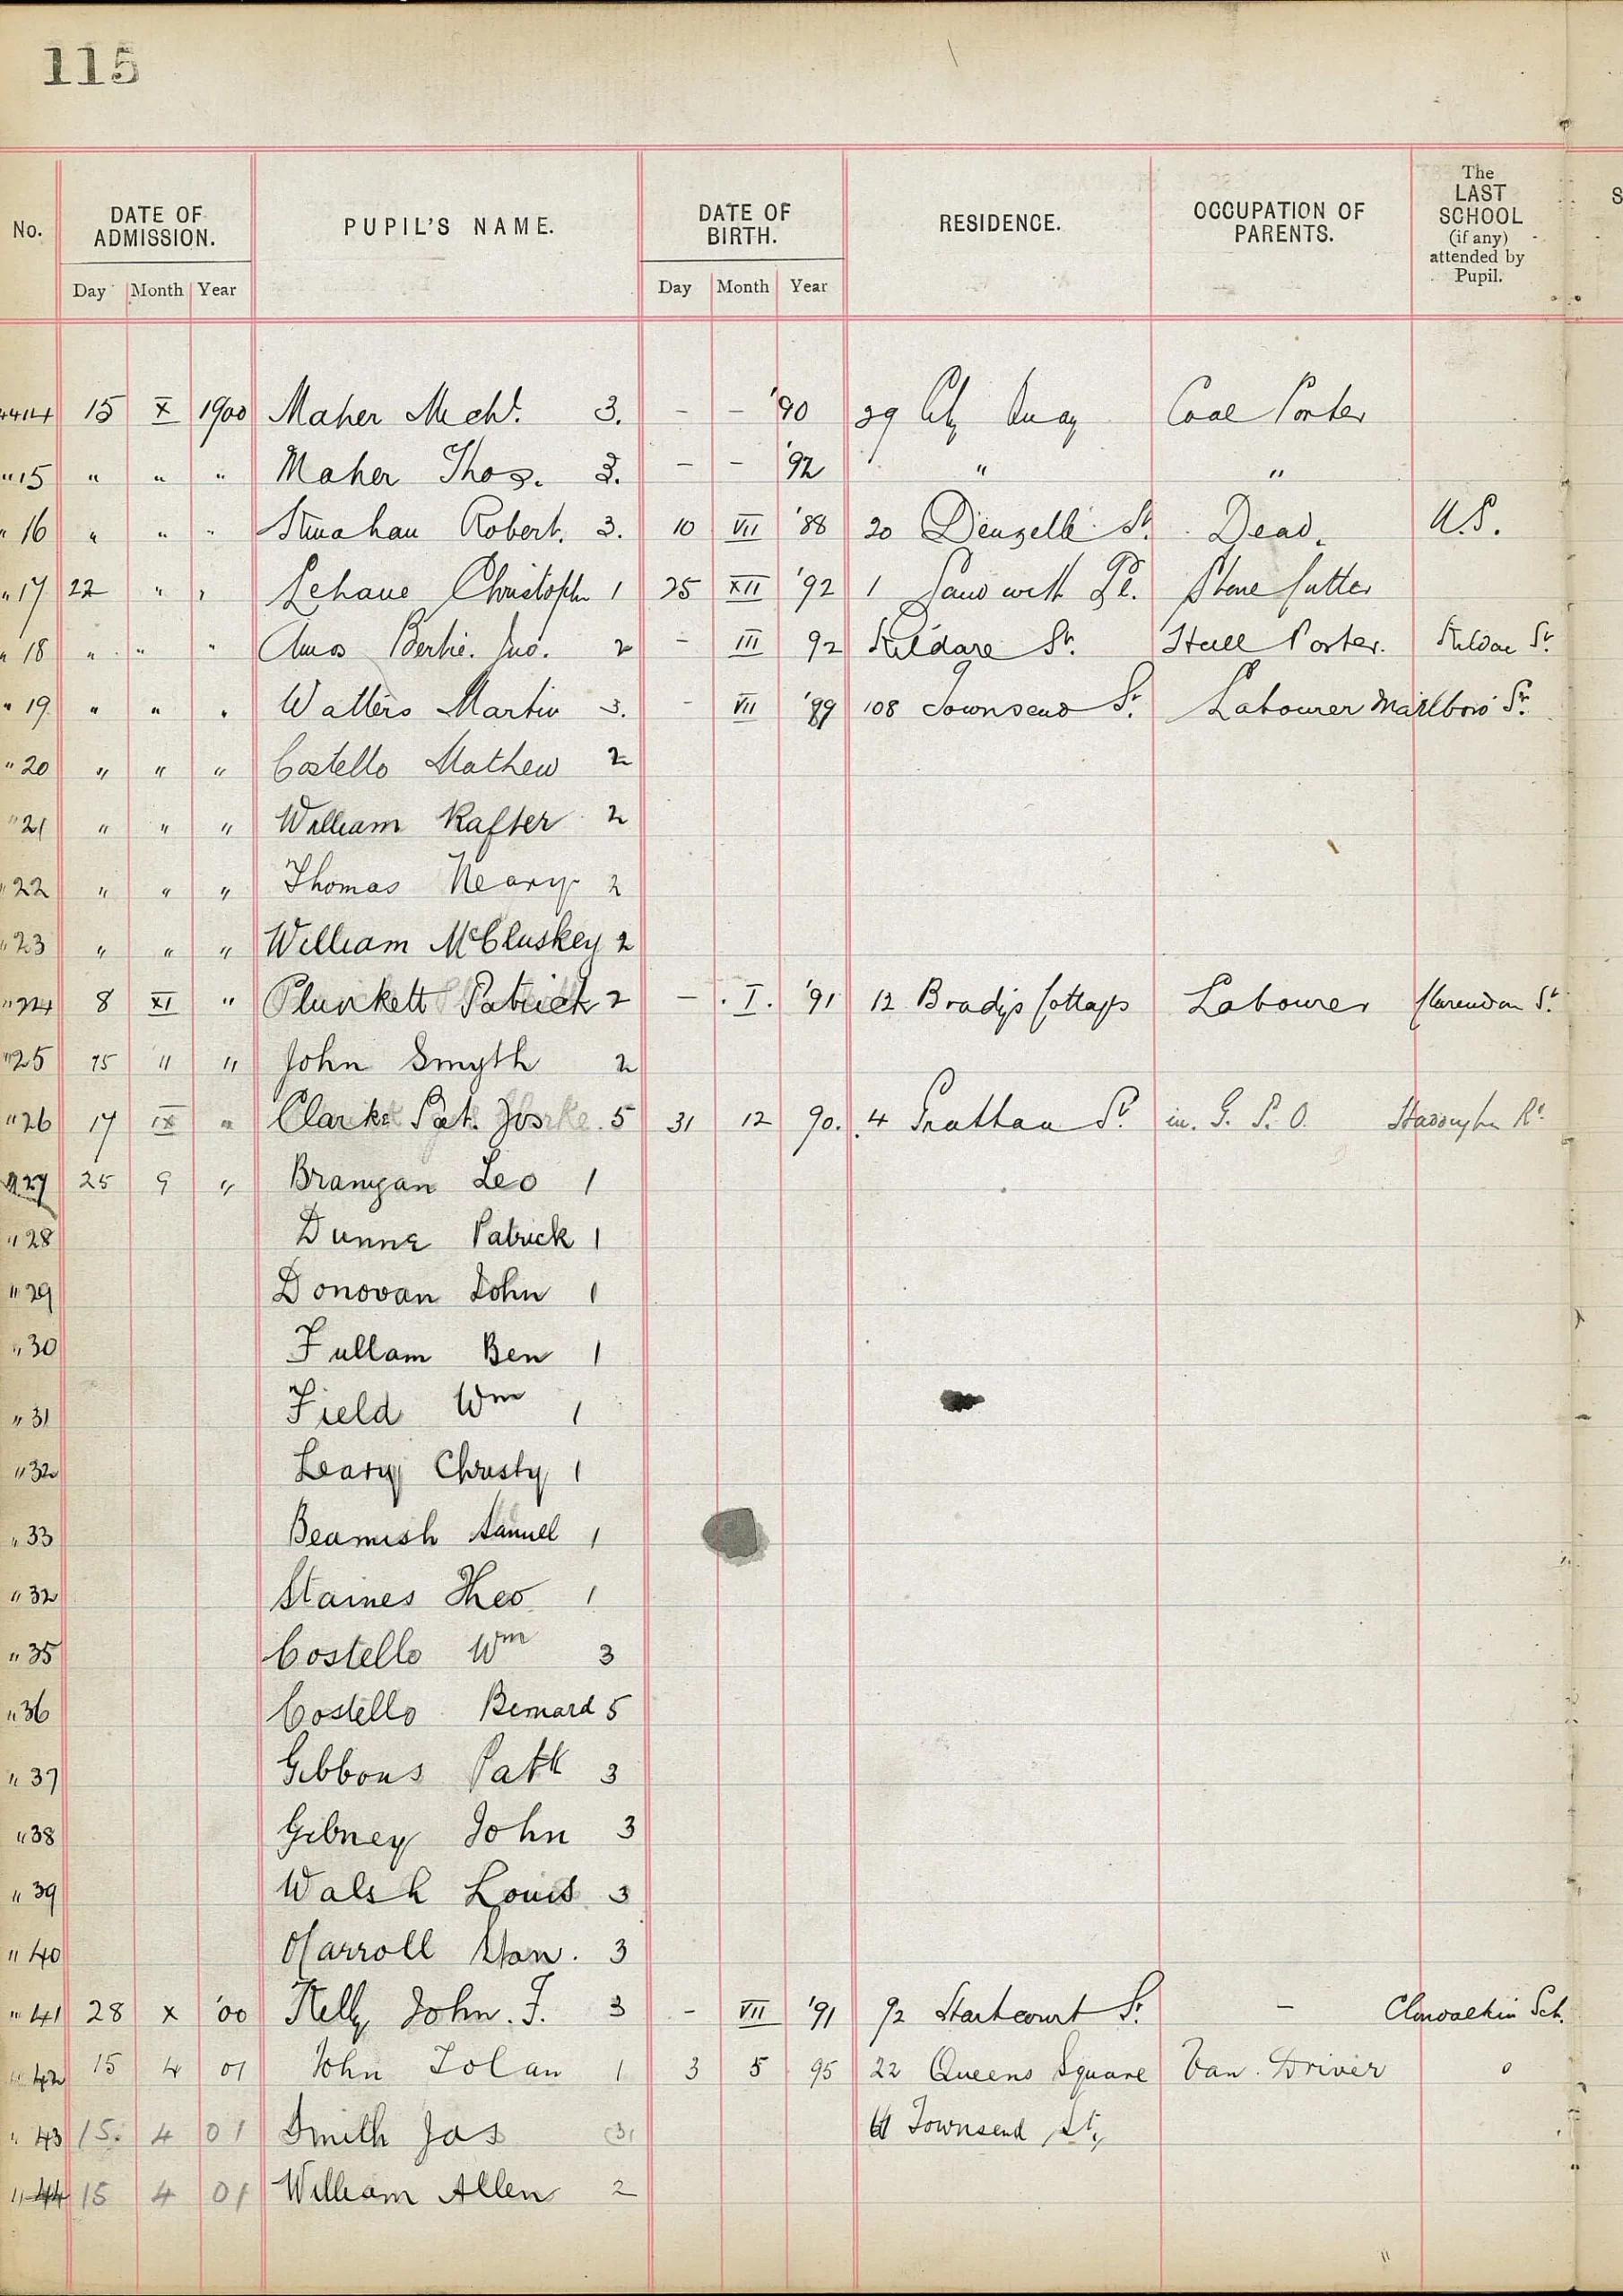 115
No. DATE OF ADMISSION. PUPIL'S NAME. DATE OF BIRTH. RESIDENCE. OCCUPATION OF PARENTS. The LAST SCHOOL (if any) attended by Pupil.
Day Month Year Day Month Year
4414 15 X 1900 Maher Mich¹. 3. - - '90 29 City Quay Coal Porter
"15 " " " Maher Thos. 3. - - '92 " "
"16 " " " Strahan Robert. 3. 10 VII '88 20 Denzelle St. Dead. N.S.
"17 22 " " Lehane Christoph 1 25 XII '92 1 Sandwith Pl. Stone Cutter
"18 " " " Amos Bertie. Jno. 2 - III 92 Kildare St. Hall Porter. Kildare St.
"19 " " " Watters Martin 3. - VII '89 108 Townsend St. Labourer Marlboro' St.
"20 " " " Costello Mathew 2
"21 " " " William Rafter 2
"22 " " " Thomas Neary 2
"23 " " " William McCluskey 2
"24 8 XI " Plunkett Patrick 2 - I. '91 12 Bradys Cottages Labourer Clarendon St.
"25 15 " " John Smyth 2
"26 17 IX " Clarke Pat. Jos 5 31 12 90. 4 Grattan St. in. G. P. O. Haddington Rd.
"27 25 9 " Branigan Leo 1
"28 Dunne Patrick 1
"29 Donovan John 1
"30 Fullam Ben 1
"31 Field Wm 1
"32 Leary Christy 1
"33 Beamish Samuel 1
"32 Staines Theo 1
"35 Costello Wm 3
"36 Costello Bernard 5
"37 Gibbons Patk 3
"38 Gibney John 3
"39 Walsh Louis 3
"40 O'Carroll Stan. 3
"41 28 X '00 Kelly John. F. 3 - VII '91 92 St. - Clondalkin Sch.
"42 15 4 01 John Tolan 1 3 5 95 22 Queens Square Van Driver 0
"43 15. 4 01 Smith Jas (3) 61 Townsend St.
"44 15 4 01 William Allen 2